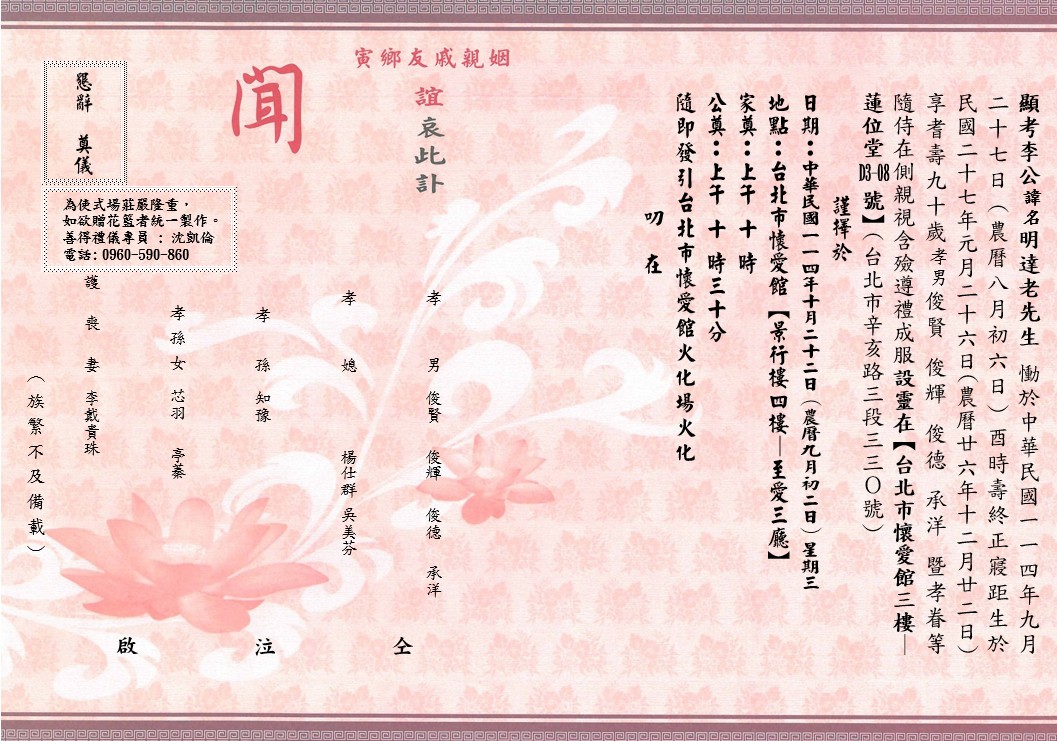 顯考李公諱名明達老先生 慟於中華民國一一四年九月
二十七日(農曆八月初六日)酉時壽終正寢距生於
民國二十七年元月二十六日(農曆廿六年十二月廿二日)
享耆壽九十歲孝男俊賢 俊輝 俊德 承洋 暨孝眷等
隨侍在側親視含殮遵禮成服設靈在【台北市懷愛館三樓—
蓮位堂D3-08號】(台北市辛亥路三段三三〇號)
謹擇於
日期：中華民國一一四年十月二十二日(農曆九月初二日)星期三
地點：台北市懷愛館【景行樓四樓—至愛三廳】
家奠：上午 十 時
公奠：上午 十 時三十分
隨即發引台北市懷愛館火化場火化
叨 在
寅鄉友戚親姻
誼哀此訃
聞
孝 男 俊賢 俊輝 俊德 承洋
孝 媳 楊仕群 吳美芬
孝 孫 知豫
孝孫女 芯羽 亭蓁
護 喪 妻 李戴貴珠
(族繁不及備載)
仝
泣
啟
懇辭 奠儀
為使式場莊嚴隆重，
如欲贈花籃者統一製作。
善得禮儀專員 : 沈凱倫
電話: 0960-590-860